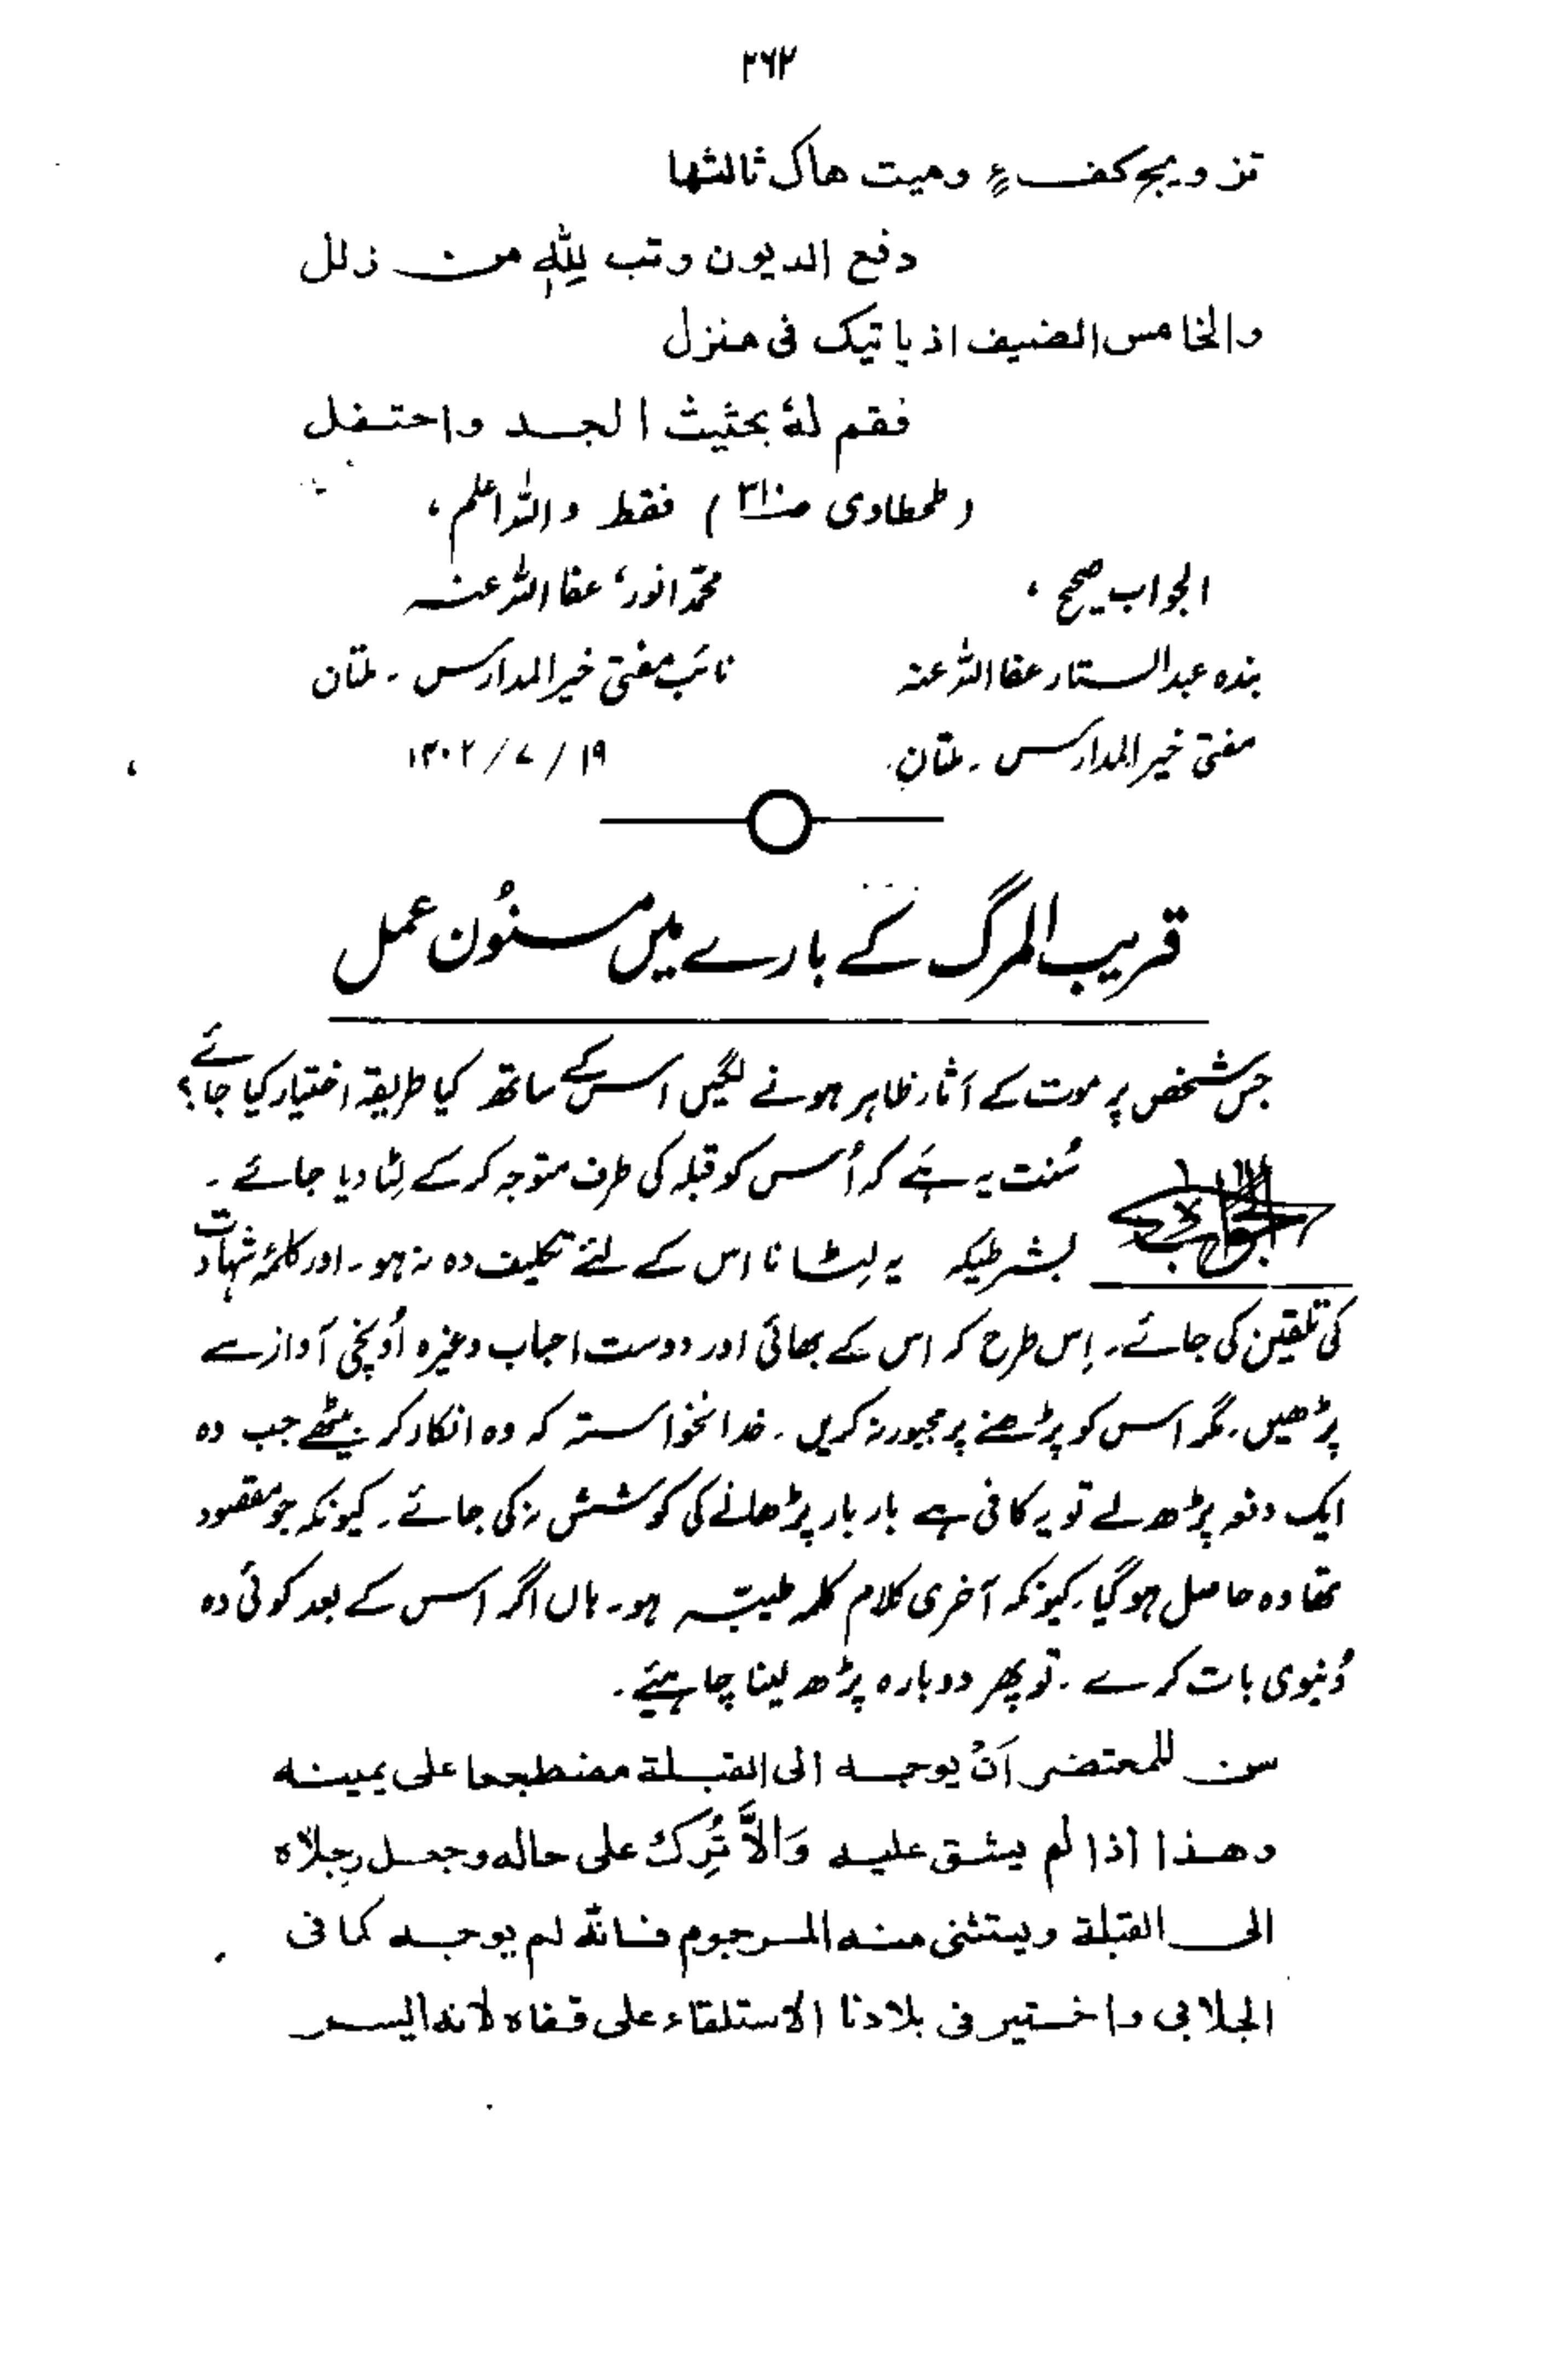 ۲۶۲
تزويج كفءٍ وميت هاك ثالثها
دفع الديون وتب لِلّٰهِ من زلل
والخامس الضيف اذ ياتيك فى منزل
فقم لهٗ بحثيث الجد واحتفل
(طحطاوی ص۳۱۰) فقط واللہ اعلم،
الجواب صحیح،
محمد انور، عفا اللہ عنہ
بندہ عبدالستار عفا اللہ عنہ
نائب مفتی خیرالمدارس ۔ ملتان
مفتی خیرالمدارس ۔ ملتان
۱۹ / ۷ / ۱۴۰۲
قریب المرگ کے بارے میں مسنُون عمل
جس شخص پر موت کے آثار ظاہر ہونے لگیں اس کے ساتھ کیا طریقہ اختیار کیا جائے؟
الجواب سُنت یہ ہے کہ اُس کو قبلہ کی طرف متوجہ کر کے لِٹا دیا جائے ۔
بشرطیکہ یہ لِٹانا اس کے لئے تکلیف دہ نہ ہو ۔ اور کلمۂ شہادت
کی تلقین کی جائے ۔ اِس طرح کہ اس کے بھائی اور دوست احباب وغیرہ اُونچی آواز سے
پڑھیں، مگر اس کو پڑھنے پر مجبور نہ کریں ۔ خدانخواستہ کہ وہ انکار کر بیٹھے جب وہ
ایک دفعہ پڑھ لے تو یہ کافی ہے بار بار پڑھانے کی کوشش نہ کی جائے ۔ کیونکہ جو مقصود
تھا وہ حاصل ہو گیا، کیونکہ آخری کلام کلمہ طیبہ ہو ۔ ہاں اگر اس کے بعد کوئی وہ
دُنیوی بات کرے ۔ تو پھر دوبارہ پڑھ لینا چاہیئے ۔
سن للمحتضر اَنْ يوجه الى القبلة مضطجعا على يمينه
وهذا اذا لم يشق عليه وَالاَّ تُرِكَ على حاله وجعل رجلاه
الى القبلة ويستثنى منه المرجوم فانهٗ لم يوجه كما فى
الجلابى واختير فى بلادنا الاستلقاء على قفاه لانه اليسر